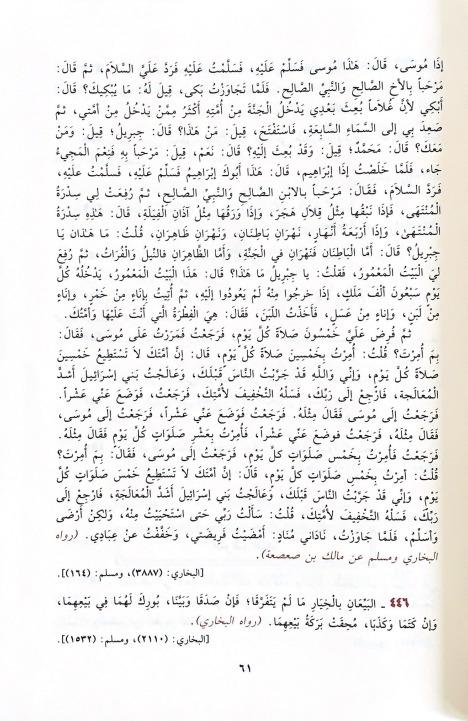 إِذَا مُوسَى، قَالَ: هَذَا مُوسى فَسَلِّمْ عَلَيْهِ، فَسَلَّمْتُ عَلَيْهِ فَرَدَّ عَلَيَّ السَّلاَمَ، ثمَّ قَالَ:
مَرْحَباً بِالأخِ الصَّالِحِ وَالنَّبِيِّ الصَّالِحِ. فَلَمَّا تَجَاوَزْتُ بَكى، قِيلَ لَهُ: مَا يُبْكِيكَ؟ قَالَ:
أَبْكِي لأَنَّ غُلاَماً بُعِثَ بَعْدِي يَدْخُلُ الْجَنَّةَ مِنْ أُمَّتِهِ أَكْثَرُ مِمَّنْ يَدْخُلُ مِنْ أُمَّتِي، ثمَّ
صَعِدَ بِي إلى السَّمَاءِ السَّابِعَةِ، فَاسْتَفْتَحَ، قِيلَ: مَنْ هَذَا؟ قَالَ: جِبْرِيلُ؛ قِيلَ: وَمَنْ
مَعَكَ؟ قَالَ: مُحَمَّدٌ؛ قِيلَ: وَقَدْ بُعِثَ إِلَيْهِ؟ قَالَ: نَعَمْ، قِيلَ: مَرْحَباً بِهِ فَنِعْمَ الْمَجِيءُ
جَاء، فَلَمَّا خَلَصْتُ إِذَا إِبْرَاهِيم، قَالَ: هَذَا أَبُوكَ إِبْرَاهِيمُ فَسَلِّمْ عَلَيْهِ، فَسَلَّمْتُ عَلَيْهِ،
فَرَدَّ السَّلاَمَ، فَقَالَ: مَرْحَباً بِالابْنِ الصَّالِحِ وَالنَّبِيِّ الصَّالِحِ، ثمَّ رُفِعَتْ لِي سِدْرَةُ
الْمُنْتَهَى، فَإِذَا نَبْقُهَا مِثْلُ قِلاَلِ هَجَرَ، وَإِذَا وَرَقُهَا مِثْلُ آذَانِ الْفِيَلَةِ، قَالَ: هَذِهِ سِدْرَةُ
الْمُنْتَهَى، وَإِذَا أَرْبَعَةُ أَنْهَارٍ، نَهْرَانِ بَاطِنَانِ، وَنَهْرَانِ ظَاهِرَانِ، قُلْتُ: مَا هَذَانِ يَا
جِبْرِيلُ؟ قَالَ: أَمَّا الْبَاطِنَانِ فَنَهْرَانِ في الْجَنَّةِ، وَأَمَّا الظَّاهِرَانِ فَالنِّيلُ وَالْفُرَاتُ، ثمَّ رُفِعَ
لِيَ الْبَيْتُ الْمَعْمُورُ، فَقلتُ: يَا جِبْرِيلُ مَا هَذَا؟ قَالَ: هَذَا الْبَيْتُ الْمَعْمُورُ، يَدْخُلُهُ كُلَّ
يَوْمٍ سَبْعُونَ أَلْفَ مَلَكٍ، إِذَا خرجُوا مِنْهُ لَمْ يَعُودُوا إِلَيْهِ، ثمَّ أُتِيتُ بِإنَاءٍ مِنْ خَمْرٍ، وَإنَاءٍ
مِنْ لَبَنٍ، وَإنَاءٍ مِنْ عَسَلٍ، فَأَخَذْتُ اللَّبَنَ، فَقَالَ: هِيَ الْفِطْرَةُ الَّتي أَنْتَ عَلَيْهَا وَأُمَّتُكَ.
ثمَّ فُرِضَ عَلَيَّ خَمْسُونَ صَلاَةً كُلَّ يَوْمٍ، فَرَجَعْتُ فَمَرَرْتُ عَلَى مُوسَى،
بِمَ أُمِرْتَ؟ قُلْتُ: أُمِرْتُ بِخَمْسِينَ صَلاَةً كُلَّ يَوْمٍ، قال: إِنَّ أمَّتَكَ لاَ تَسْتَطِيعُ خَمْسِينَ
صَلاَةً كُلَّ يَوْمٍ، وَإِنِّي وَاللَّهِ قَدْ جَرَّبْتُ النَّاسَ قَبْلَكَ، وَعَالَجْتُ بَنِي إِسْرَائِيلَ أَشَدَّ
الْمُعَالَجَةِ، فَارْجِعْ إلَى رَبِّكَ، فَسَلْهُ التَّخْفِيفَ لأُمَّتِكَ، فَرَجَعْتُ، فَوَضَعَ عَنِّي عَشْراً.
فَرَجَعْتُ إلَى مُوسَى فَقَالَ مِثْلَهُ. فَرَجَعْتُ فَوَضَعَ عَنِّي عَشْراً، فَرَجَعْتُ إلَى مُوسَى،
فَقَالَ مِثْلَهُ، فَرَجَعْتُ فوضعَ عَنِّي عَشْراً، فَأُمِرْتُ بِعَشْرِ صَلَوَاتٍ كُلَّ يَوْمٍ فَقَالَ مِثْلَهُ.
فَرَجَعْتُ فَأُمِرْتُ بِخَمْسِ صَلَوَاتٍ كُلَّ يَوْمٍ، فَرَجَعْتُ إلَى مُوسَى، فَقَالَ: بِمَ أُمِرْتَ؟
قُلْتُ: أُمِرْتُ بِخَمْسِ صَلَوَاتٍ كُلَّ يَوْمٍ، قَالَ: إِنَّ أُمَّتَكَ لاَ تَسْتَطِيعُ خَمْسَ صَلَوَاتٍ كُلَّ
يَوْمٍ، وَإِنِّي قَدْ جَرَّبْتُ النَّاسَ قَبْلَكَ، وَعَالَجْتُ بَنِي إِسْرَائِيلَ أَشَدَّ الْمُعَالَجَةِ، فَارْجِعْ إلَى
رَبِّكَ، فَسَلْهُ التَّخْفِيفَ لأُمَّتِكَ: قُلْتُ: سَأَلْتُ رَبِّي حَتى اسْتَحْيَيْتُ مِنْهُ، وَلكِنْ أَرْضَى
وَأُسَلِّمُ، فَلَمَّا جَاوَزْتُ، نَادَانِي مُنَادٍ: أَمْضَيْتُ فَرِيضَتي، وَخَفَّفْتُ عَنْ عِبَادِي. (رواه
البخاري ومسلم عن مالك بن صعصعة).
[البخاري: (٣٨٨٧)، ومسلم: (١٦٤)].
٤٤٦ ـ البَيِّعَانِ بِالْخِيَارِ مَا لَمْ يَتَفَرَّقَا؛ فَإنْ صَدَقَا وَبَيَّنَا، بُورِكَ لَهُمَا فِي بَيْعِهِمَا،
وَإِنْ كَتَمَا وَكَذَبَا، مُحِقَتْ بَرَكَةُ بَيْعِهِمَا. (رواه البخاري).
[البخاري: (٢١١٠)، ومسلم: (١٥٣٢)].
٦١